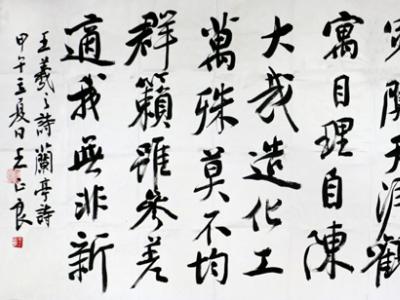 无涯觀
寓目理自陳
大哉造化工
萬殊莫不均
群籟雖參差
適我無非新
王羲之詩蘭亭詩
甲午之夏日王正良